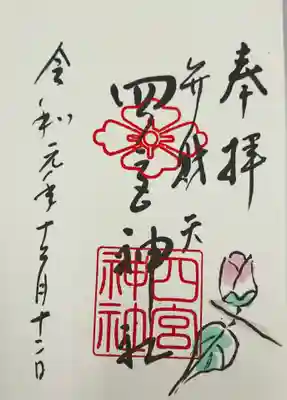 奉拝
弁財天
四宮神社
令和元年十二月十二日
四宮
神社